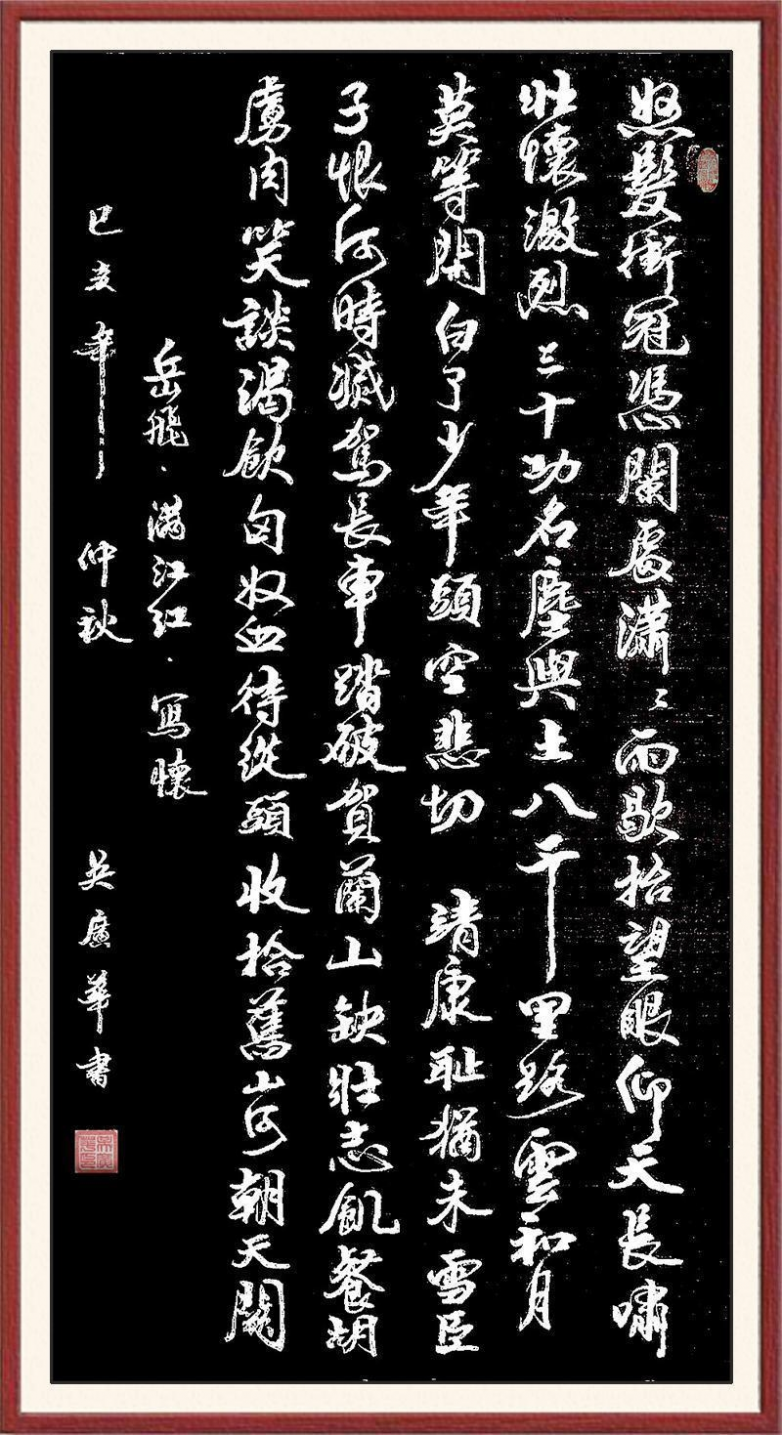 怒髮衝冠憑闌處瀟〻雨歇抬望眼仰天長嘯
壯懷激烈 三十功名塵與土八千里路雲和月
莫等閑白了少年頭空悲切 靖康耻猶未雪臣
子恨何時滅駕長車踏破賀蘭山缺壯志飢餐胡
虜肉笑談渴飲匈奴血待從頭收拾舊山河朝天闕
岳飛·滿江紅·寫懷
己亥年 仲秋 吳廣華書